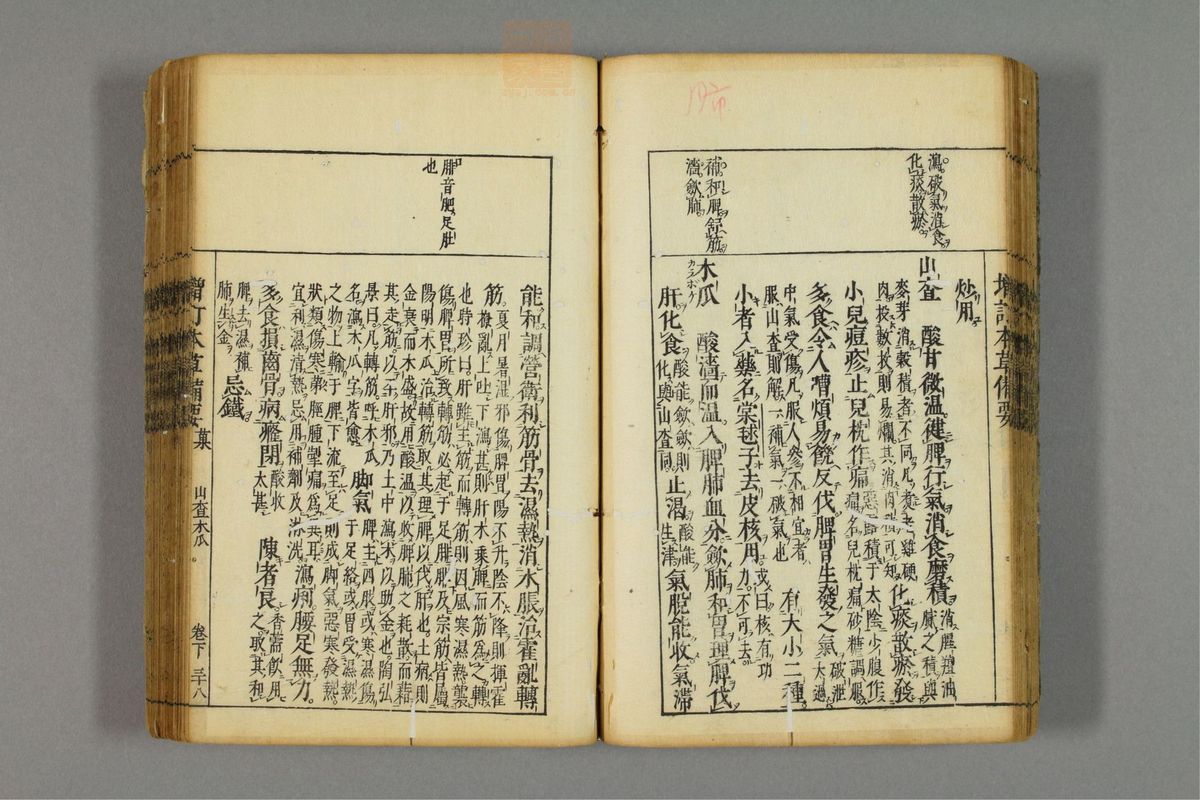 瀉破氣消食
化痰散瘀
補和脾舒筋
濇斂肺
增訂本草備要
炒用
山査 酸甘微溫健脾行氣消食磨積 消腥羶油膩之積與
麥芽消穀積者不同凡煮老雞硬
肉投數枚則易爛其消肉積可知 化痰散瘀發
小兒痘疹止兒枕作痛 惡露積于太陰少腹作
痛名兒枕痛砂糖調服
多食令人嘈煩易饑反伐脾胃生發之氣 破泄太過
中氣受傷凡服人參不相宜者
服山査則解一補氣一破氣也 有大小二種
小者入藥名棠毬子去皮核用 或曰核有功
力不可去
木瓜 酸濇而溫入脾肺血分斂肺和胃理脾伐
カラボケ
肝化食 酸能斂斂則
化與山査同 止渴 酸能
生津 氣脫能收氣滯
腓音肥足肚
也
能和調營衛利筋骨去濕熱消水脹治霍亂轉
筋 夏月暑濕邪傷脾胃陽不升陰不降則揮霍
撩亂上吐下瀉甚則肝木乘脾而筋為之轉
也時珍曰肝雖主筋而轉筋則因風寒濕熱襲
傷脾胃所致轉筋必起于足腓腓及宗筋皆屬
陽明木瓜治轉筋取其理脾以伐肝也土病則
金衰而木盛故用酸溫以收脾肺之耗散而藉
其走筋以平肝邪乃土中瀉木以助金也陶弘
景曰凡轉筋呼木瓜
名寫木瓜字皆愈 脚氣 脾主四肢或寒濕傷
于足絡或胃受濕熱
之物上輸于脾下流至足則成脚氣惡寒發熱
狀類傷寒第脛腫掣痛為異耳
宜利濕淸熱忌用補劑及淋洗 瀉痢腰足無力
多食損齒骨病癃閉 酸收
太甚 陳者良 香薷飲用
之取其和
脾去濕補
肺生金 忌鐵
增訂本草備要 菓 山査木瓜 卷下 三十八